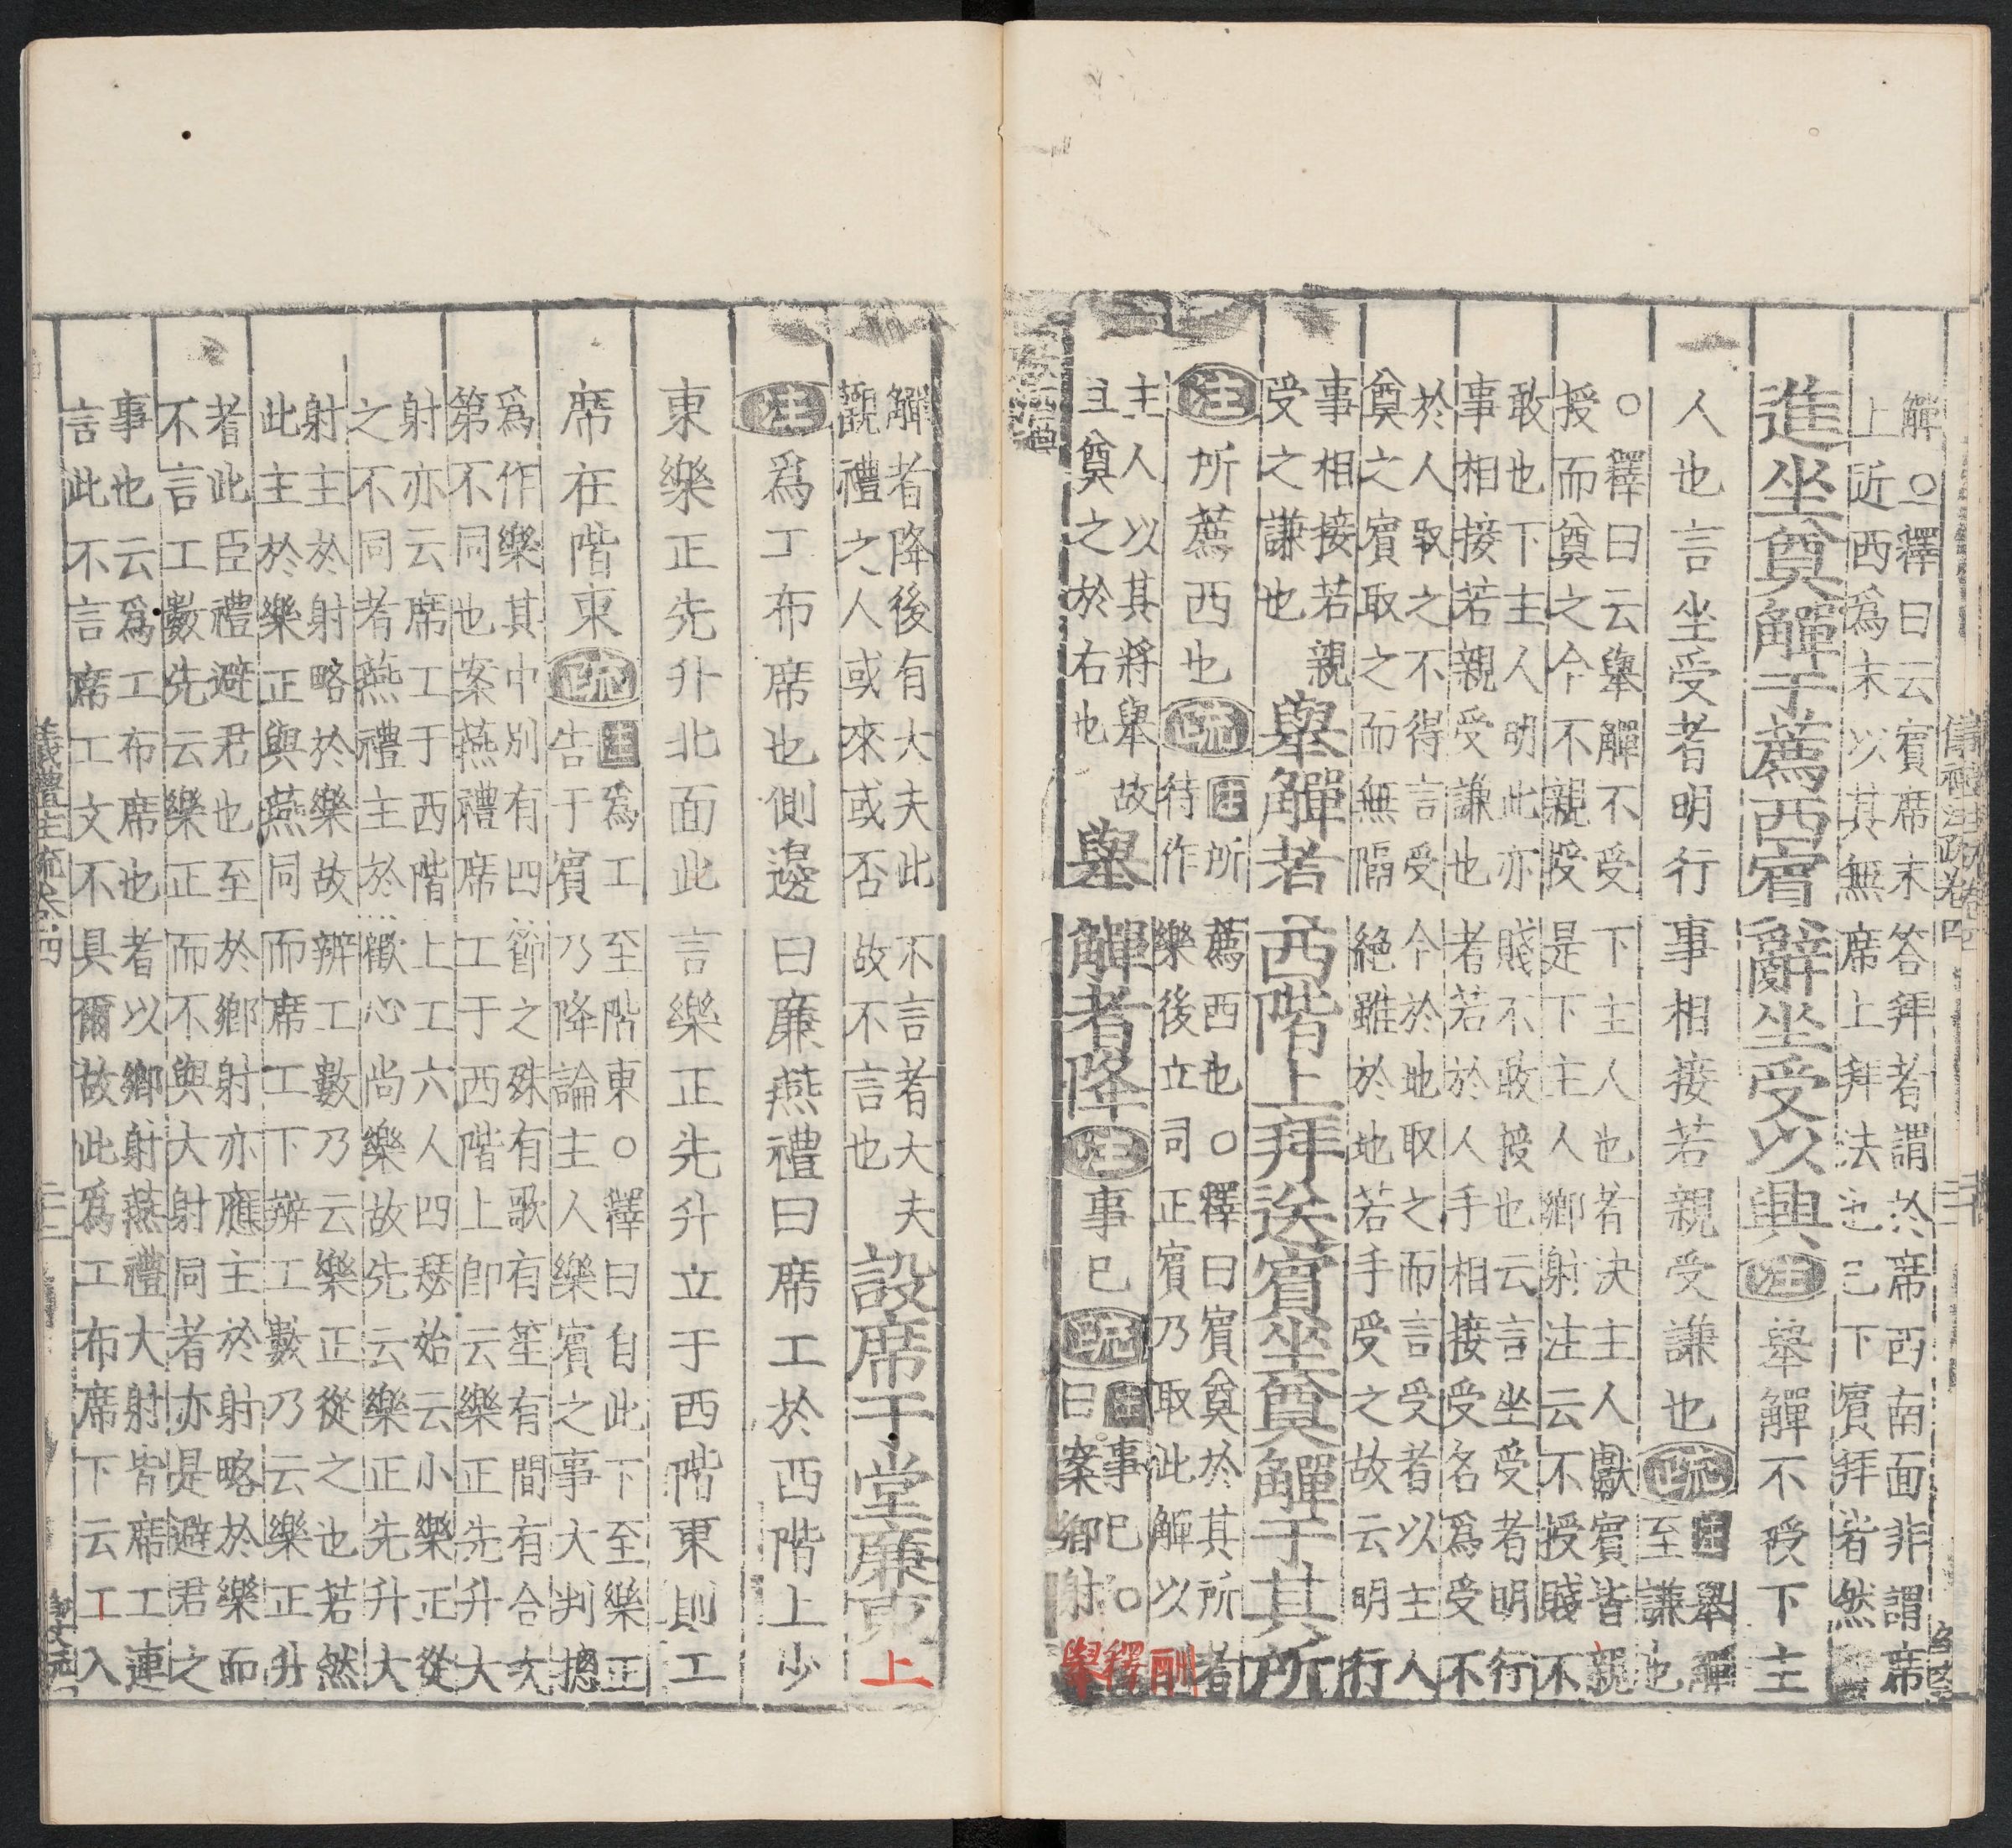 觶○釋曰云賓席末答拜者謂於席西南面非謂席
上近西爲末以其無席上拜法也已下賓拜者然
進坐奠觶于薦西賓辭坐受以興注舉觶不授下主
人也言坐受者明行事相接若親受謙也疏
注舉觶
至謙也
○釋曰云舉觶不受下主人也者決主人獻賓皆親
授而奠之今不親授是下主人鄉射注云不授賤不
敢也下主人明此亦賤不敢授也云言坐受者明行
事相接若親受謙也者若於人手相接受名爲受不
於人取之不得言受今於地取之而言受者以主人
奠之賓取之而無隔絕雖於地若手受之故云明行
事相接若親
受之謙也
舉觶者西階上拜送賓坐奠觶于其所
注所薦西也疏
注所薦西也○釋曰賓奠於其所者
待作樂後立司正賓乃取此觶以酬
主人以其將舉故
且奠之於右也
舉觶者降注事已疏
注事已○釋
曰案鄉射舉
觶者降後有大夫此不言者大夫
觀禮之人或來或否故不言也
設席于堂廉東上
注爲工布席也側邊曰廉燕禮曰席工於西階上少
東樂正先升北面此言樂正先升立于西階東則工
席在階東疏
注爲工至階東○釋曰自此下至樂正
告于賓乃降論主人樂賓之事大判揔
爲作樂其中別有四節之殊有歌有笙有間有合次
第不同也案燕禮席工于西階上卽云樂正先升大
射亦云席工于西階上工六人四瑟始云小樂正從
之不同者燕禮主於歡心尚樂故先云樂正先升大
射主於射略於樂故辨工數乃云樂正從之也若然
此主於樂正與燕同而席工下辨工數乃云樂正升
者此臣禮避君也至於鄉射亦應主於射略於樂而
不言工數先云樂正而不與大射同者亦是避君之
事也云爲工布席也者以鄉射燕禮大射皆席工連
言此不言席工文不具爾故此爲工布席下云工入